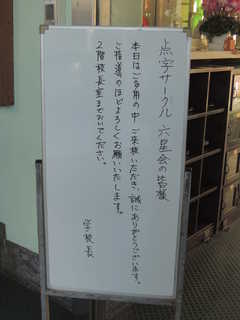 点字サークル 六星会の皆様
本日はご多用の中ご来校いただき、誠にありがとうございます。
ご指導のほどよろしくお願いいたします。
２階校長室までおいでください。
学校長